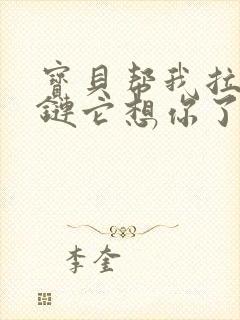 寶貝幫我拉
鏈它想你了
李奎